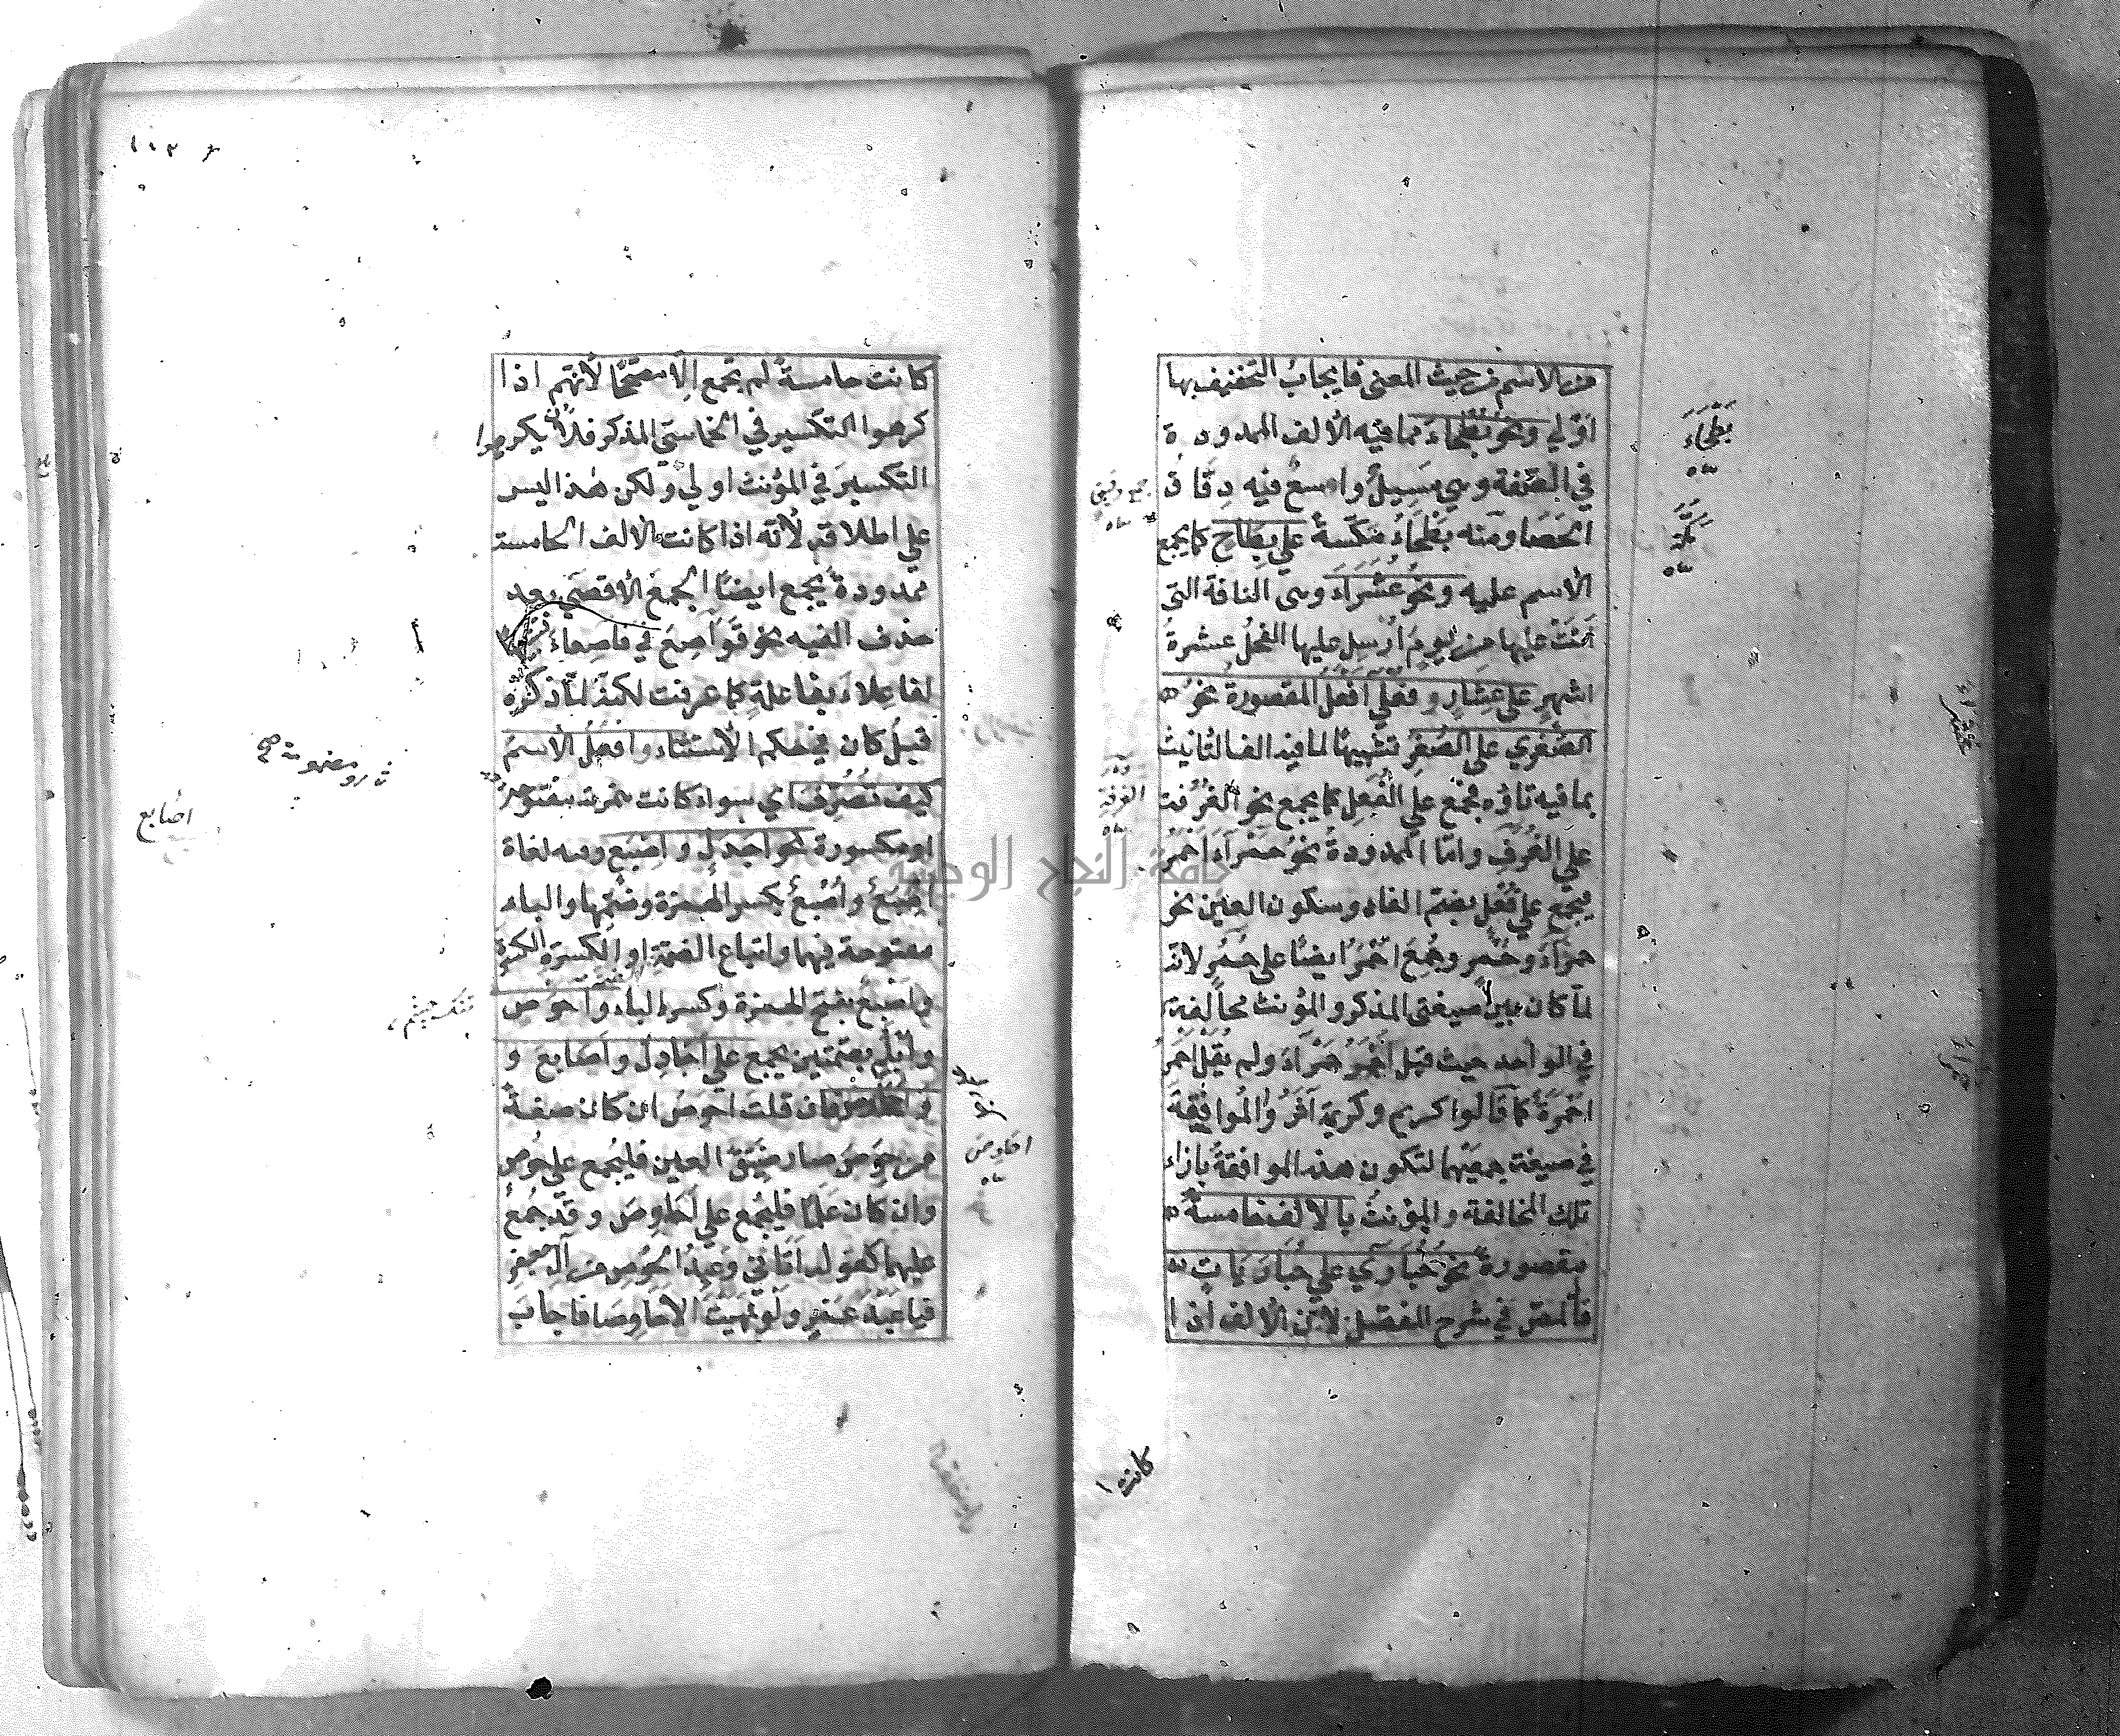 من الاسم من حيث المعنى فايجابُ التخفيف بها
اَوْلي ونحوُ بَطْحَاءَ مما فيه الألف الممدودة
في الصفة وهي مَسِيلٌ واسعٌ فيه دِقَاقُ
الحَصَا ومنه بَطْحَاءُ مَكّةَ على بِطَاحٍ كما يجمع
الاسم عليه ونحوُ عُشَرَاءَ وهي الناقة التي
اَتَتْ عليها من يومَ اُرْسِل عليها الفحلُ عشرةُ
اشهرٍ على عِشَارٍ وفُعْلَى اَفْعَلَ المقصورةُ نحوُ
الصُغْري على الصُغَرِ تشبيهًا لما فيه الف التأنيث
بما فيه تاؤه فجمع على الفُعَلِ كما يجمع نحو الغُرْفَت
على الغُرَفِ وامّا الممدودةُ نحوُ حَمْرَاءَ اَحْمَرَ
فيجمع على فُعْلٍ بضم الفاء وسكون العين نحو
حمراءَ وحُمْرٍ وجُمِعَ احْمَرُ ايضًا على حُمْرٍ لانه
لمّا كان بين صيغتى المذكر والمؤنث مخالفةٌ
في الواحد حيث قيل اَحْمَرُ حَمْرَاءَ ولم يقل احمر
احمَرَةٌ كما قالوا كريم وكريمة آثَرُوا الموافقة
في صيغة جمعيهما لتكون هذه الموافقةُ بازاء
تلك المخالفة والمؤنثُ بالالف خامسةً
مقصورةً نحوُ حُبَارَي على حُبَارَيَاتٍ
قال المص في شرح المفصّل لانّ الألف اذا
بَطْحَاءَ
مَكّةَ
كانت
كانت خامسةً لم تجمع إلّا مصححًا لأنّهم اذا
كرهوا التكسير في الخماسيّ المذكر فلأن يكرهوا
التكسيرَ في المؤنث اولي ولكن هذا ليس
على اطلاقه لأنّه اذا كانت الالف الخامسة
ممدودةً يجمع ايضًا الجمعَ الأقصَي بعد
حذف الفيه نحو قَوَاصِعَ في قاصِعاءَ
لفاعِلاءَ بفاعلةٍ كما عرفت لكنه لمّا ذكره
قبلُ كان في حكم الأستثناء وافعلُ الأسمُ
كيف تُصُرِّفَ اي سواء كانت همزته مفتوحةً
او مكسورة نحو اَجْدَلٍ واصبعٍ وفيه لغات
اِصْبَعٌ واُصْبَعٌ بكسر الهمزة وضمّها والباء
مفتوحة فيهما واتباع الضمة او الكسرة الكسرة
واَصْبِعٌ بفتح الهمزة وكسر الباء واَحْوَصَ
واُبْلُمٍ بضمّتين يجمع على اَجَادِلَ واَصَابِعَ و
فان قلت اَحْوَصُ ان كان صفةً
من حَوِصَ صار ضَيِّقَ العين فليُجمع على حُوصٍ
وان كان عَلَمًا فليُجمع على اَحَاوِصَ وقد جُمِعَ
عليهما كقوله اَتَاني وَعِيدُ الحُوصِ من آل جعفرٍ
فيا عَبْدَ عَمْرٍو لَو نَهَيْتَ الأحاوِصَا فاجابَ
اصابع
احاوص